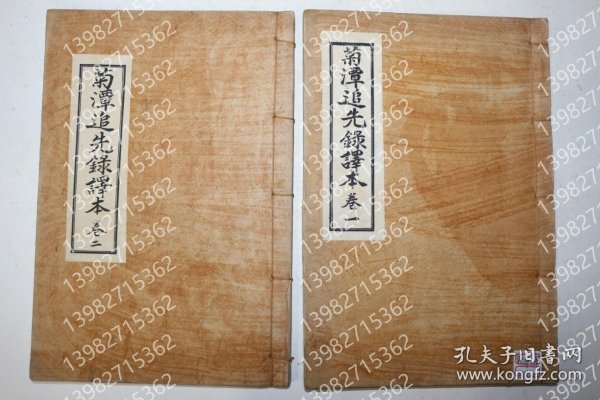 菊潭追先錄譯本 卷一
菊潭追先錄譯本 卷二
13982715362
孔夫子旧書网
www.kongfz.com